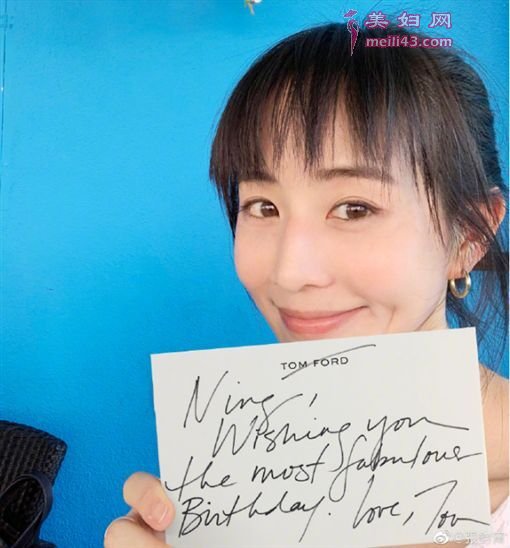 美妇网
meili43.com
TOM FORD
Ning,
Wishing you
the most fabulous
Birthday. Love, Tom